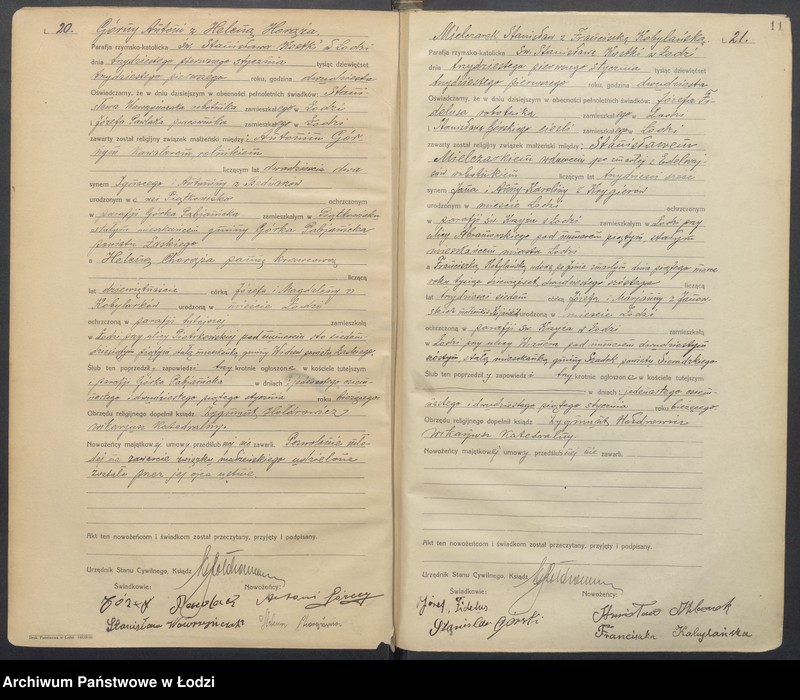 20.
Górny Antoni z Heleną Horąża.
Parafja rzymsko-katolicka św. Stanisława Kostki w Łodzi
dnia trzydziestego pierwszego stycznia tysiąc dziewięćset
trzydziestego pierwszego roku, godzina dwudziesta
Oświadczamy, że w dniu dzisiejszym w obecności pełnoletnich świadków: Stani-
sława robotnika zamieszkałego w Łodzi
i Józefa zamieszkałego w Łodzi
zawarty został religijny związek małżeński między: Antonim Gór-
nym kawalerem rolnikiem
liczącym lat dwadzieścia dwa
synem i Antoniny z
urodzonym w wsi Piątkowisko ochrzczonym
w parafji Górka Pabjanicka zamieszkałym w Piątkowisku
stałym mieszkańcem gminy Górka Pabjanicka
powiatu Łaskiego
a Heleną panną krawcową
liczącą
lat dziewiętnaście córką Józefa i Magdaleny z
urodzoną w mieście Łodzi
ochrzczoną w parafji tutejszej zamieszkałą
w Łodzi przy ulicy Piotrkowskiej pod numerem sto siedem-
dziesiątym piątym stałą mieszkanką gminy powiatu Łaskiego.
Ślub ten poprzedziły zapowiedzi trzykrotnie ogłoszone w kościele tutejszym
i parafji Górka Pabjanicka w dniach: osiem-
nastego i dwudziestego piątego stycznia roku bieżącego
Obrzędu religijnego dopełnił ksiądz Zygmunt
wikarjusz Katedralny.
Nowożeńcy majątkowej umowy przedślubnej nie zawarli. Pozwolenie mło-
dej na zawarcie związku małżeńskiego udzielone
zostało przez jej ojca ustnie.
Akt ten nowożeńcom i świadkom został przeczytany, przyjęty i podpisany.
Urzędnik Stanu Cywilnego, Ksiądz
Świadkowie: Nowożeńcy:
Józef Antoni Górny
Stanisław Helena
11
21.
Mielczarek Stanisław z Franciszką Kobylańską.
Parafja rzymsko-katolicka Św. Stanisława Kostki w Łodzi
dnia trzydziestego pierwszego stycznia tysiąc dziewięćset
trzydziestego pierwszego roku, godzina dwudziesta
Oświadczamy, że w dniu dzisiejszym w obecności pełnoletnich świadków: Józefa Fi-
delusa robotnika zamieszkałego w Łodzi
i Stanisława Górskiego cieśli zamieszkałego w Łodzi
zawarty został religijny związek małżeński między: Stanisławem
Mielczarkiem wdowcem po zmarłej
robotnikiem liczącym lat trzydzieści sześć
synem Jana i Anny Karoliny z
urodzonym w mieście Łodzi ochrzczonym
w parafji św. Krzyża w Łodzi zamieszkałym w Łodzi przy
ulicy Abramowskiego pod numerem piątym stałym
mieszkańcem miasta Łodzi
a Franciszką Kobylańską
roku tysiąc dziewięćset dwudziestego szóstego liczącą
lat trzydzieści siedem córką Józefa i Marjanny z
urodzoną w mieście Łodzi
ochrzczoną w parafji św. Krzyża w Łodzi zamieszkałą
w Łodzi przy ulicy pod numerem dwudziestym
szóstym stałą mieszkanką gminy Szadek powiatu Sieradzkiego
Ślub ten poprzedziły zapowiedzi trzykrotnie ogłoszone w kościele tutejszym
w dniach: jedenastego osiem-
nastego i dwudziestego piątego stycznia roku bieżącego
Obrzędu religijnego dopełnił ksiądz Zygmunt
wikarjusz Katedralny.
Nowożeńcy majątkowej umowy przedślubnej nie zawarli.
Akt ten nowożeńcom i świadkom został przeczytany, przyjęty i podpisany.
Urzędnik Stanu Cywilnego, Ksiądz
Świadkowie: Nowożeńcy:
Józef Fidelus
Stanisław Górski
Franciszka Kobylańska
Archiwum Państwowe w Łodzi